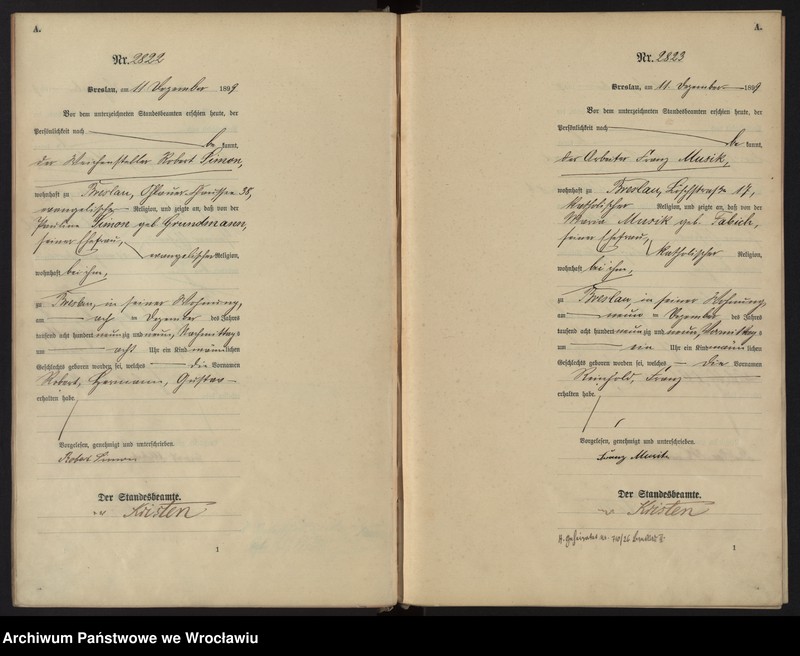 A.
Nr. 2822
Breslau, am 11 Dezember 1899
Vor dem unterzeichneten Standesbeamten erschien heute, der
Persönlichkeit nach
be kannt,
der Weichensteller Robert Simon,
wohnhaft zu Breslau, Ohlauer Chaussee 35,
evangelischer Religion, und zeigte an, daß von der
Pauline Simon geb. Grundmann,
seiner Ehefrau,
evangelischer Religion,
wohnhaft bei ihm,
zu Breslau, in seiner Wohnung,
am acht ten Dezember des Jahres
tausend acht hundert neunzig und neun, Nachmittags
um acht Uhr ein Kind männlichen
Geschlechts geboren worden sei, welches die Vornamen
Robert, Hermann, Gustav
erhalten habe.
Vorgelesen, genehmigt und unterschrieben.
Robert Simon
Der Standesbeamte.
Kristen
1
A.
Nr. 2823
Breslau, am 11. Dezember 1899
Vor dem unterzeichneten Standesbeamten erschien heute, der
Persönlichkeit nach
be kannt,
der Arbeiter Franz Musik,
wohnhaft zu Breslau, Löschstraße 17,
katholischer Religion, und zeigte an, daß von der
Maria Musik geb. Fabich,
seiner Ehefrau,
katholischer Religion,
wohnhaft bei ihm,
zu Breslau, in seiner Wohnung,
am neun ten Dezember des Jahres
tausend acht hundert neunzig und neun, Vormittags
um ein Uhr ein Kind männlichen
Geschlechts geboren worden sei, welches die Vornamen
Reinhold, Franz
erhalten habe.
Vorgelesen, genehmigt und unterschrieben.
Franz Musik
Der Standesbeamte.
Kristen
1
Archiwum Państwowe we Wrocławiu